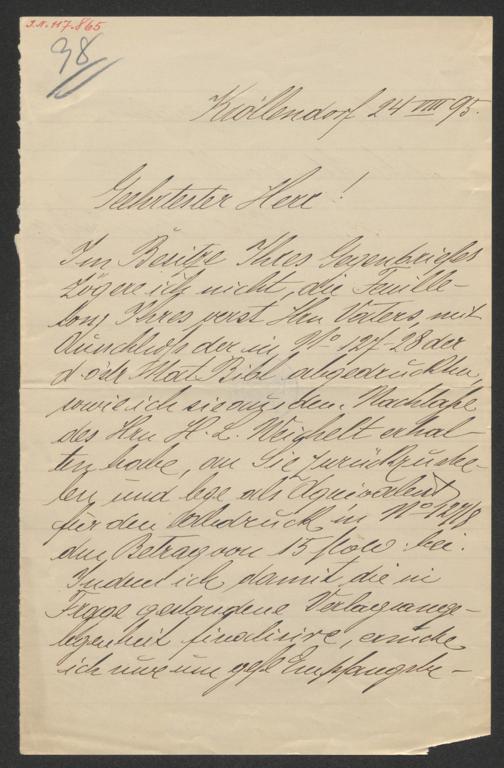 J.N. 117.865
98
Köllendorf 24 VIII 95.
Geehrtester Herr!
Im Besitze Ihres Gegenbriefes
zögere ich nicht, die Feuille-
tons Ihres verst Hrn Vaters, mit
Ausschluß der in No 127-28 der
d öst Nat Bibl. abgedruckten,
sowie ich sie aus dem Nachlaße
des Hrn H. L. Weichelt erhal-
ten habe, an Sie zurückzuste-
len und lege als Äquivalent
für den Abdruck in No 127/8
den Betrag von 15 bei.
Indem ich damit die in
Frage gestandene Verlagsange-
legenheit finalisire, ersuche
ich nur um gefl Empfangsbe-